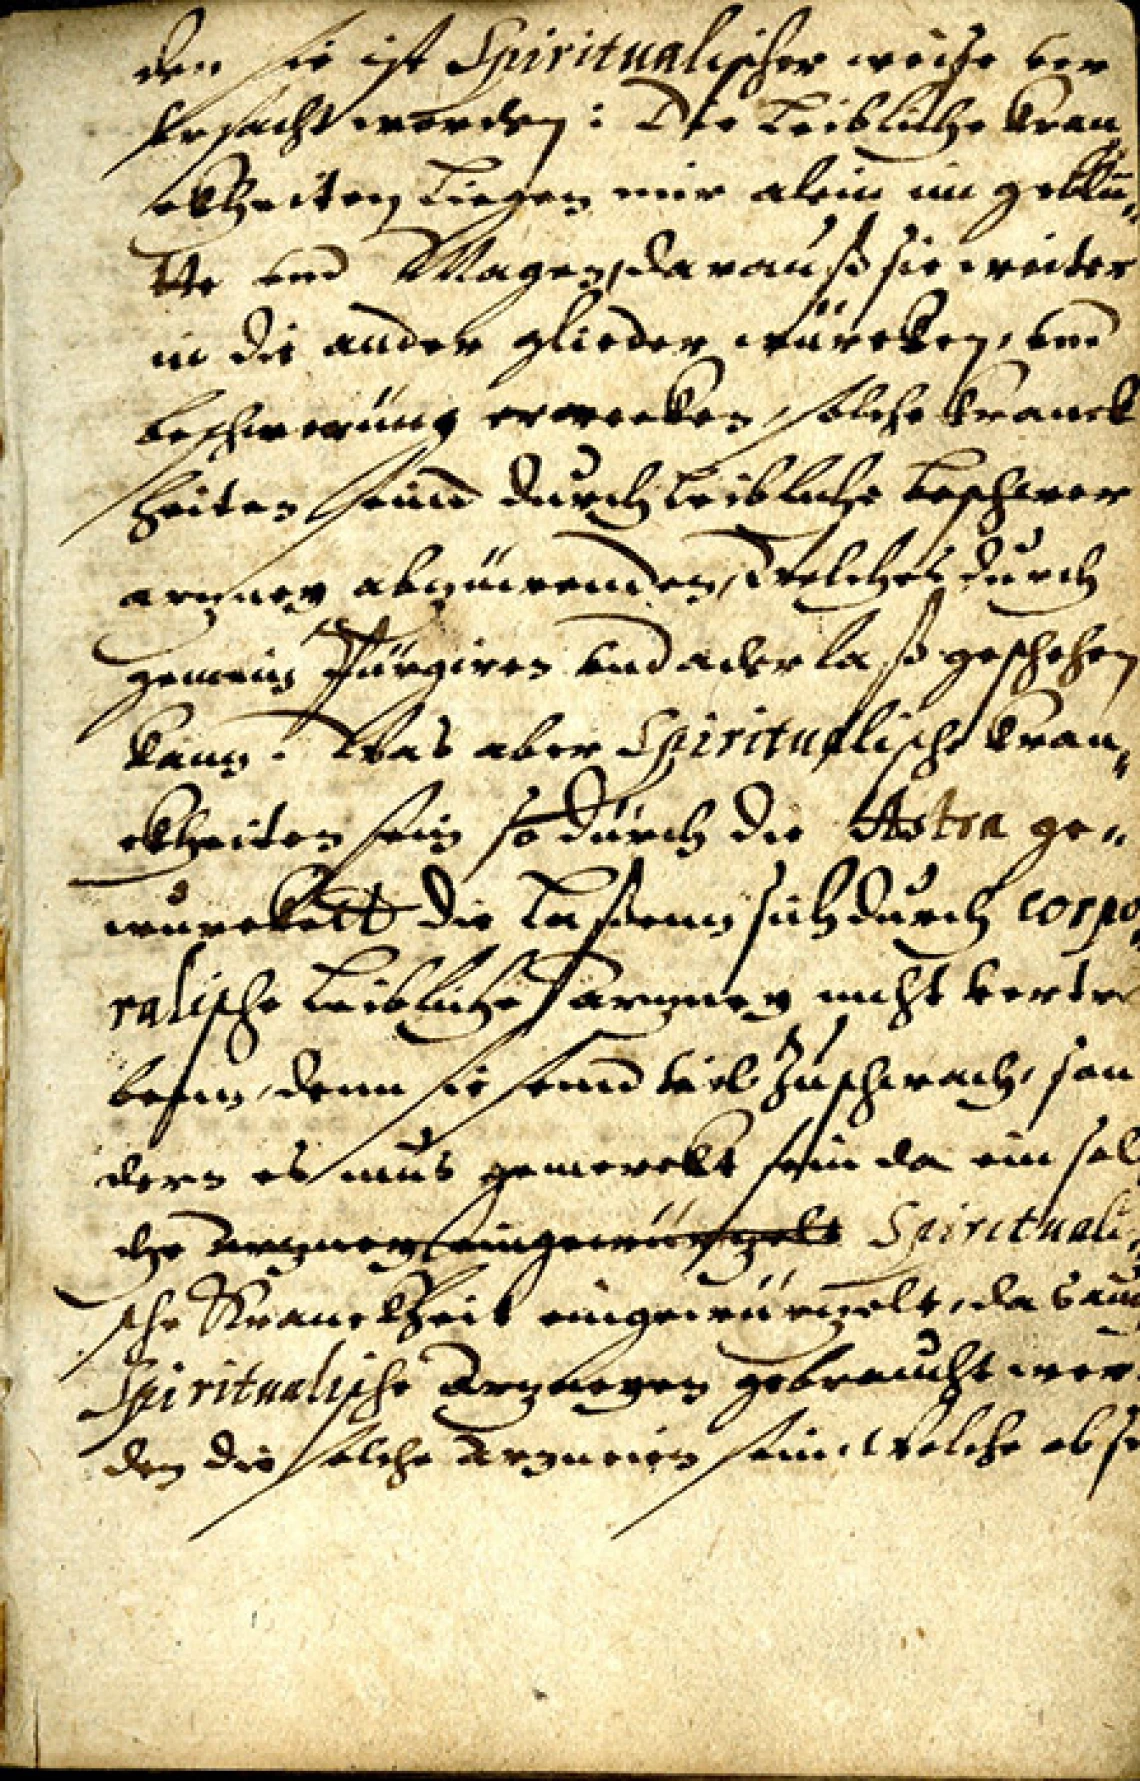 den sie ist Spiritualischer weise ver
Ursacht worden: Die Leibliche kran
ckheiten Liegen nur alein im geblü„
tte vnd Magen, darauß sie weiter
in die ander glieder würcken, vnd
beschwerüng erwecken, solche kranck
heiten seind dürch Leibliche
artzney abzüwenden, Welches dürch
gemein Pürgiren vnd aderlaß geschehen
kann. Was aber Spiritualische kran„
ckheiten sein so dürch die Astra ge„
würckett die Laßenn sich dürch corpo
ralische Leibliche artzney nicht vertre
benn, denn sie seind viel Zuschwach, son
dern es mus gemerckt sein da ein sol
che artzney eingewürtzelt Spirituali„
sche Kranckheit eingewürtzelt, da
Spiritualische Artzneyen gebraucht wer„
den die solche Artzneien sein, Welche ob